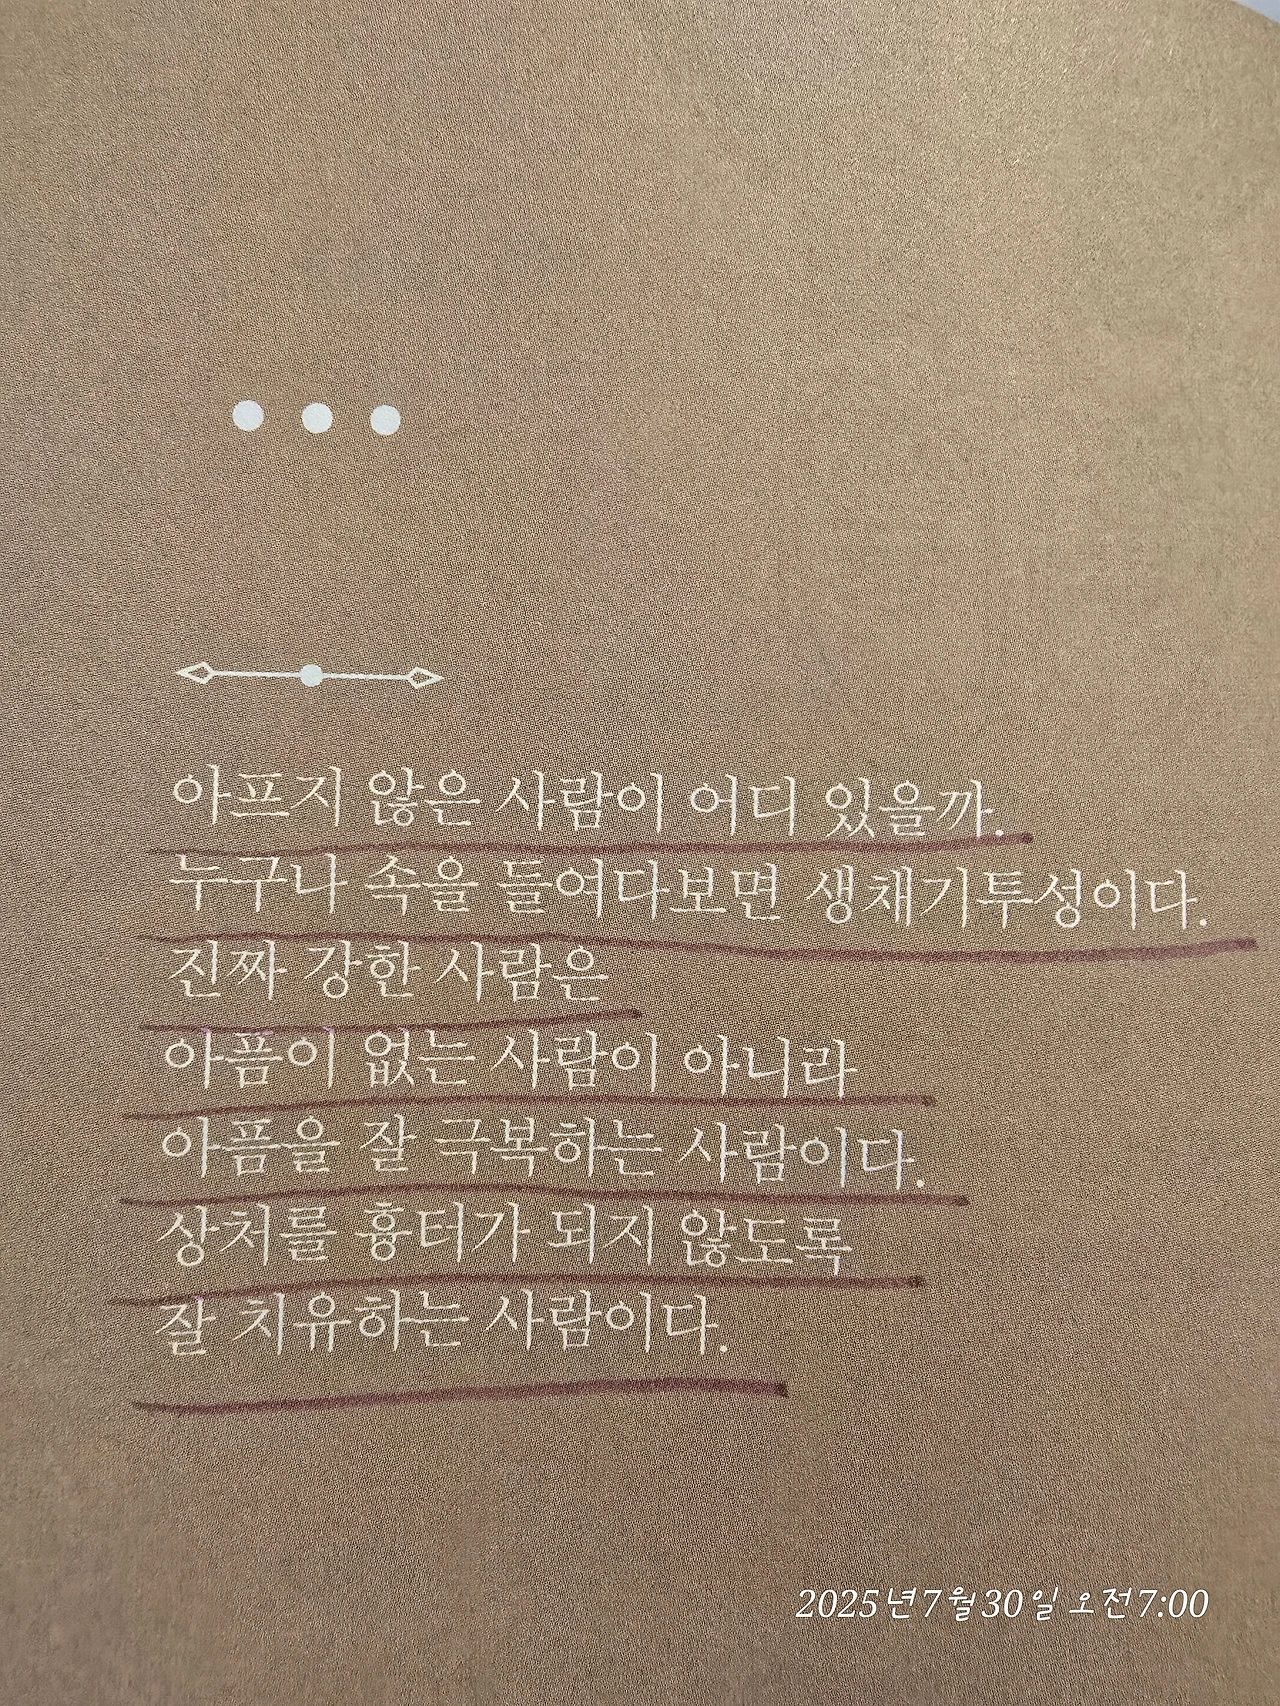 아프지 않은 사람이 어디 있을까.
누구나 속을 들여다보면 생채기투성이다.
진짜 강한 사람은
아픔이 없는 사람이 아니라
아픔을 잘 극복하는 사람이다.
상처를 흉터가 되지 않도록
잘 치유하는 사람이다.
2025년 7월 30일 오전 7:00